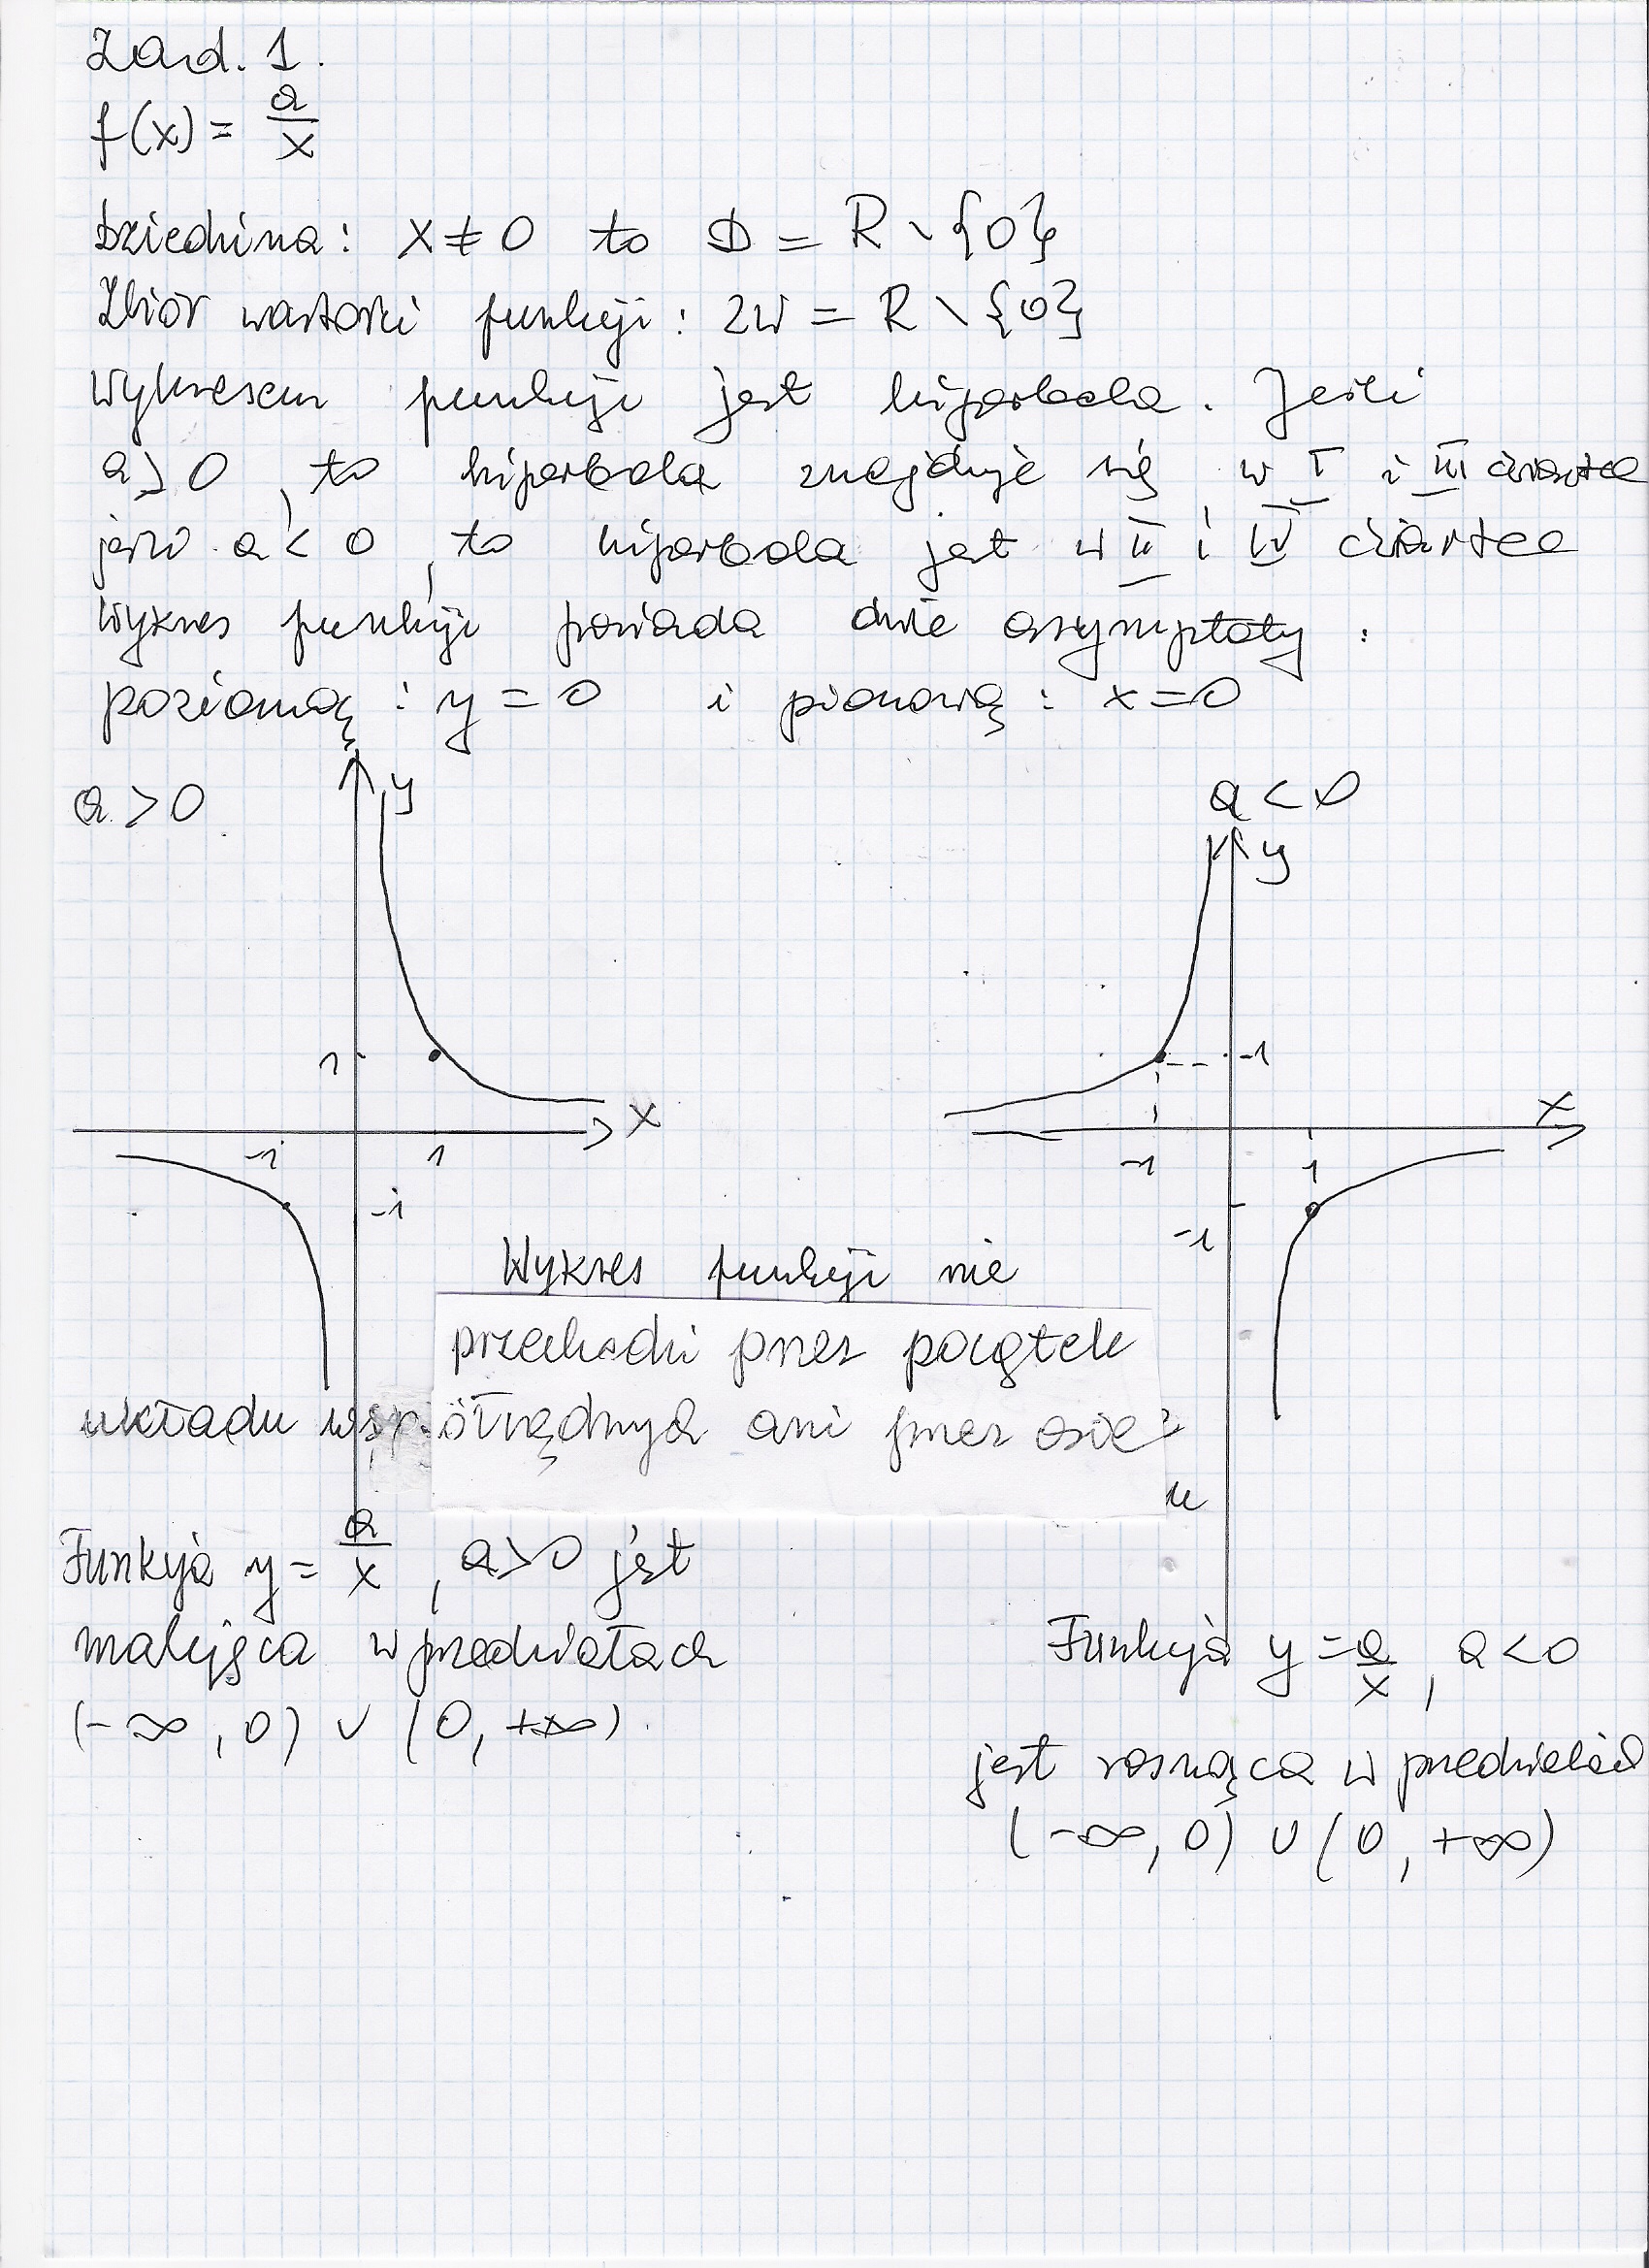 Zad. 1.
f(x) = a/x
Dziedzina: x ≠ 0 to D = R \ {0}
Zbiór wartości funkcji: ZW = R \ {0}
Wykresem funkcji jest hiperbola. Jeśli
a > 0, to hiperbola znajduje się w I i III ćwiartce
jeśli a < 0, to hiperbola jest w II i IV ćwiartce
Wykres funkcji posiada dwie asymptoty:
poziomą: y = 0 i pionową: x = 0
a > 0
y
a < 0
y
1
-1
X
x
-1
1
-1
1
-1
-1
Wykres funkcji nie
przechodzi przez początek
układu współrzędnych ani przez osie
Funkcja y = a/x, a > 0 jest
malejąca w przedziałach
(-∞, 0) ∪ (0, +∞).
Funkcja y = a/x, a < 0
jest rosnąca w przedziałach
(-∞, 0) ∪ (0, +∞)